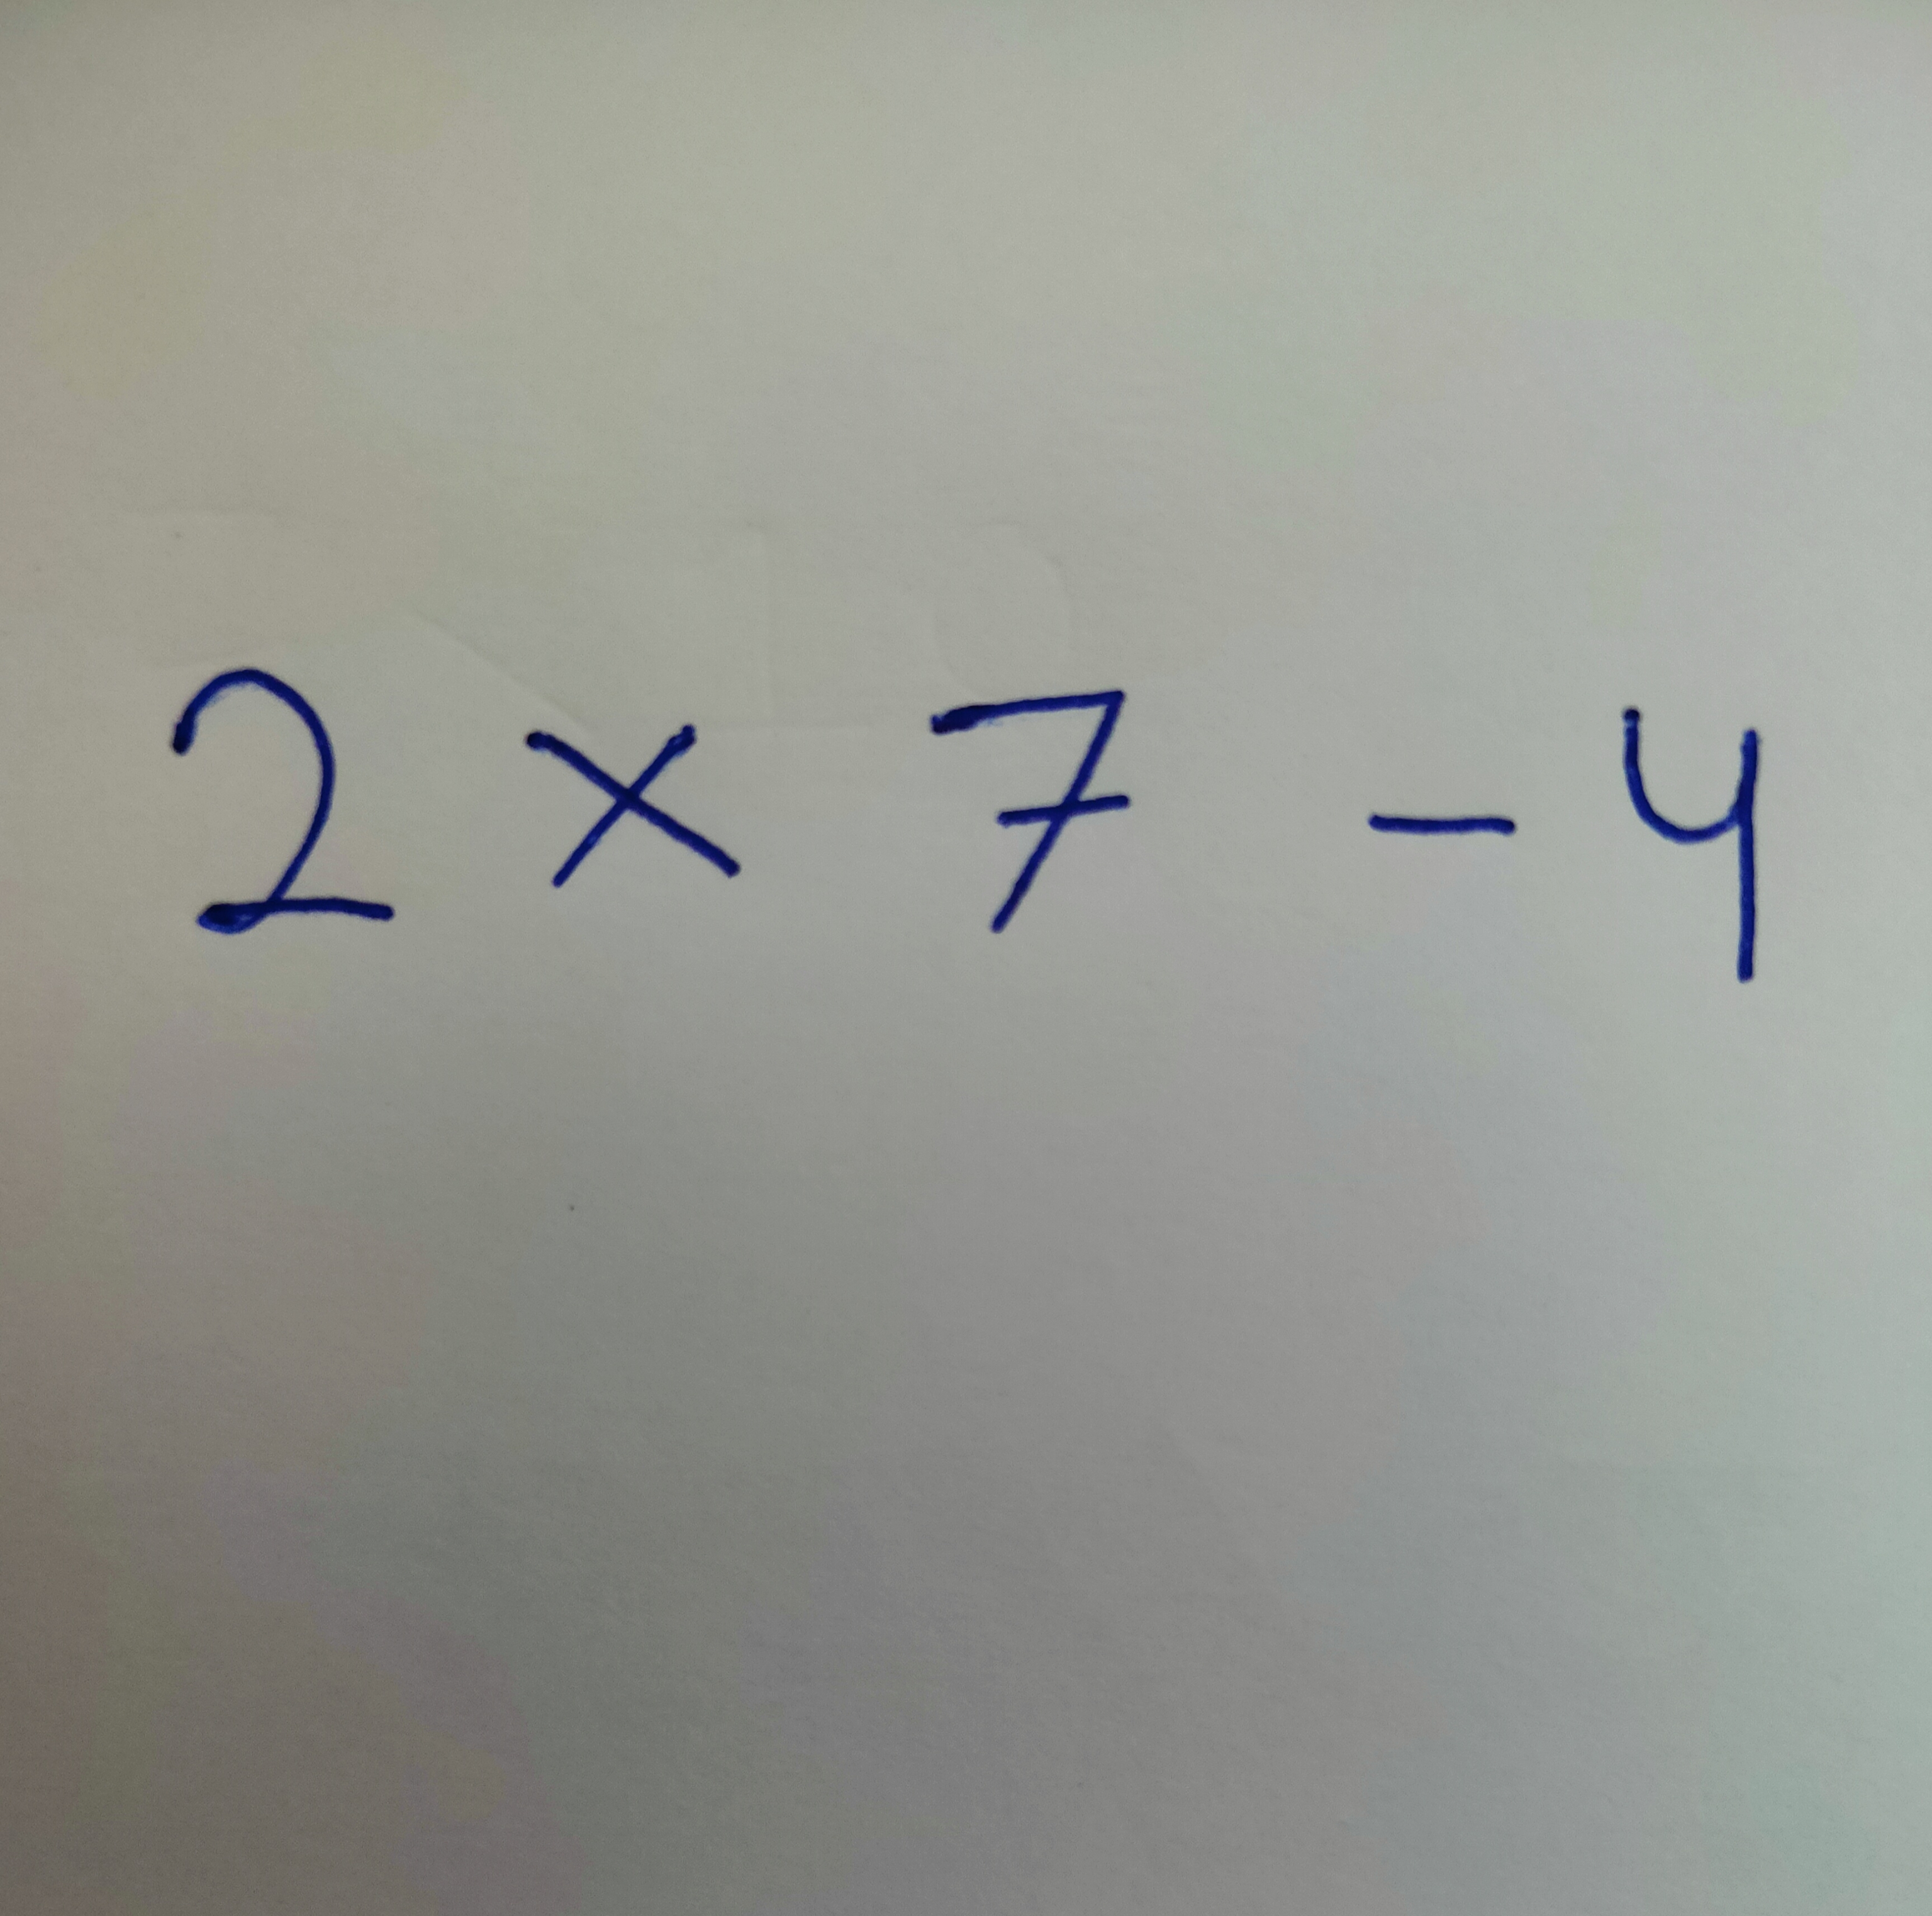 2 × 7 - 4